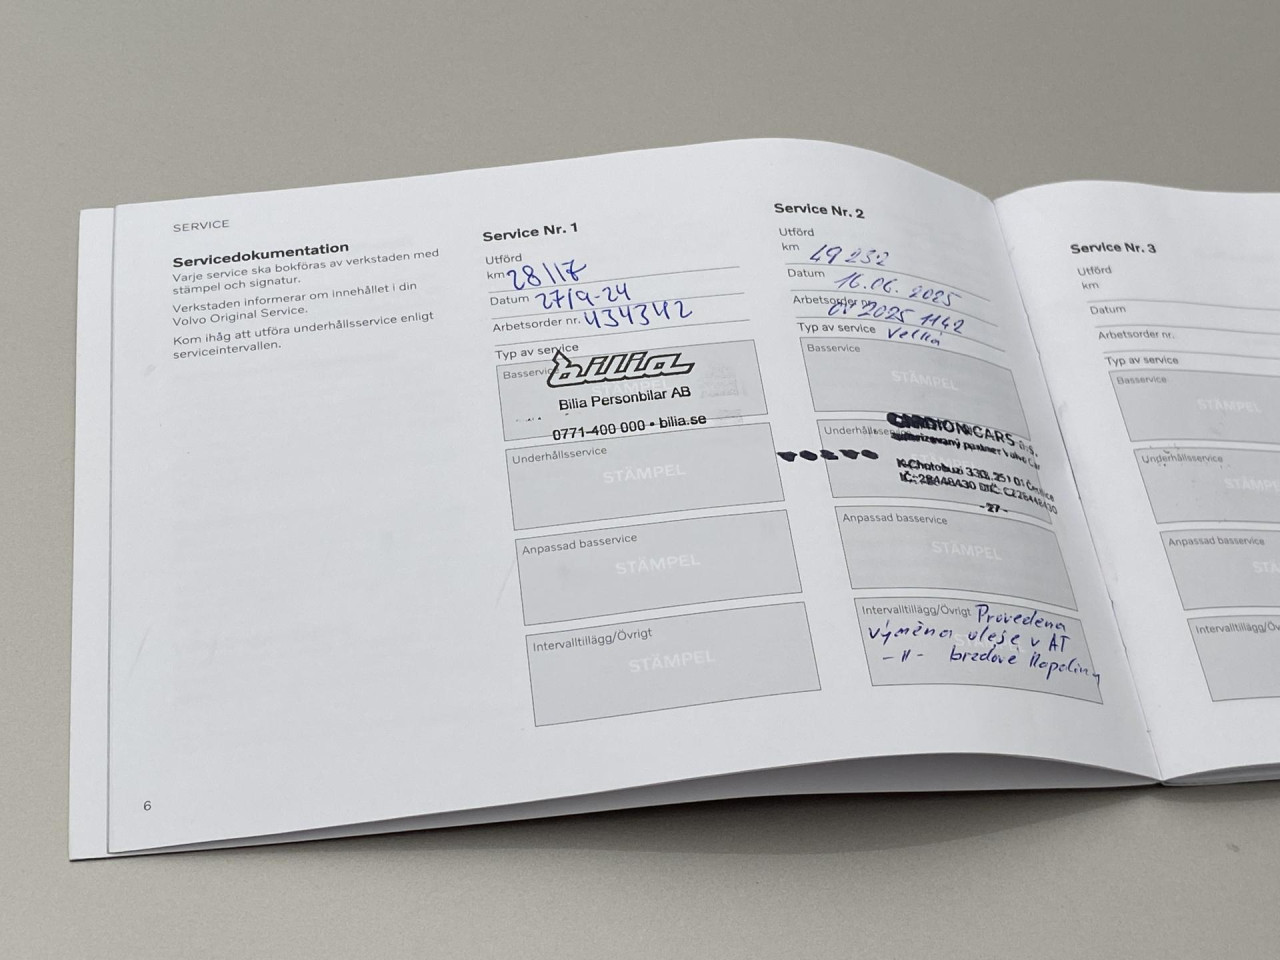 SERVICE
Servicedokumentation
Varje service ska bokföras av verkstaden med
stämpel och signatur.
Verkstaden informerar om innehållet i din
Volvo Original Service.
Kom ihåg att utföra underhållsservice enligt
serviceintervallen.
6
Service Nr. 1
Utförd
km 28117
Datum 27/9-24
Arbetsorder nr. 434342
Typ av service
Basservice
bilia
STÄMPEL
Bilia Personbilar AB
0771-400 000 • bilia.se
Underhållsservice
STÄMPEL
Anpassad basservice
STÄMPEL
Intervalltillägg/Övrigt
STÄMPEL
Service Nr. 2
Utförd
km 49 252
Datum 16.06. 2025
Arbetsorder nr. 2025 1142
Typ av service Velká
Basservice
STÄMPEL
Underhållsservice
CARDION CARS a.s.
autorizovaný partner Volvo Car
VOLVO
K Chotobuzi 333, 251 01 Čestlice
IČ: 28448430 DIČ: CZ28448430
- 27 -
Anpassad basservice
STÄMPEL
Intervalltillägg/Övrigt Provedena
výměna oleje v AT
-II- brzdové kapaliny
Service Nr. 3
Utförd
km
Datum
Arbetsorder nr.
Typ av service
Basservice
STÄMPEL
Underhållsservice
STÄMPEL
Anpassad basservice
STÄ
Intervalltillägg/Öv